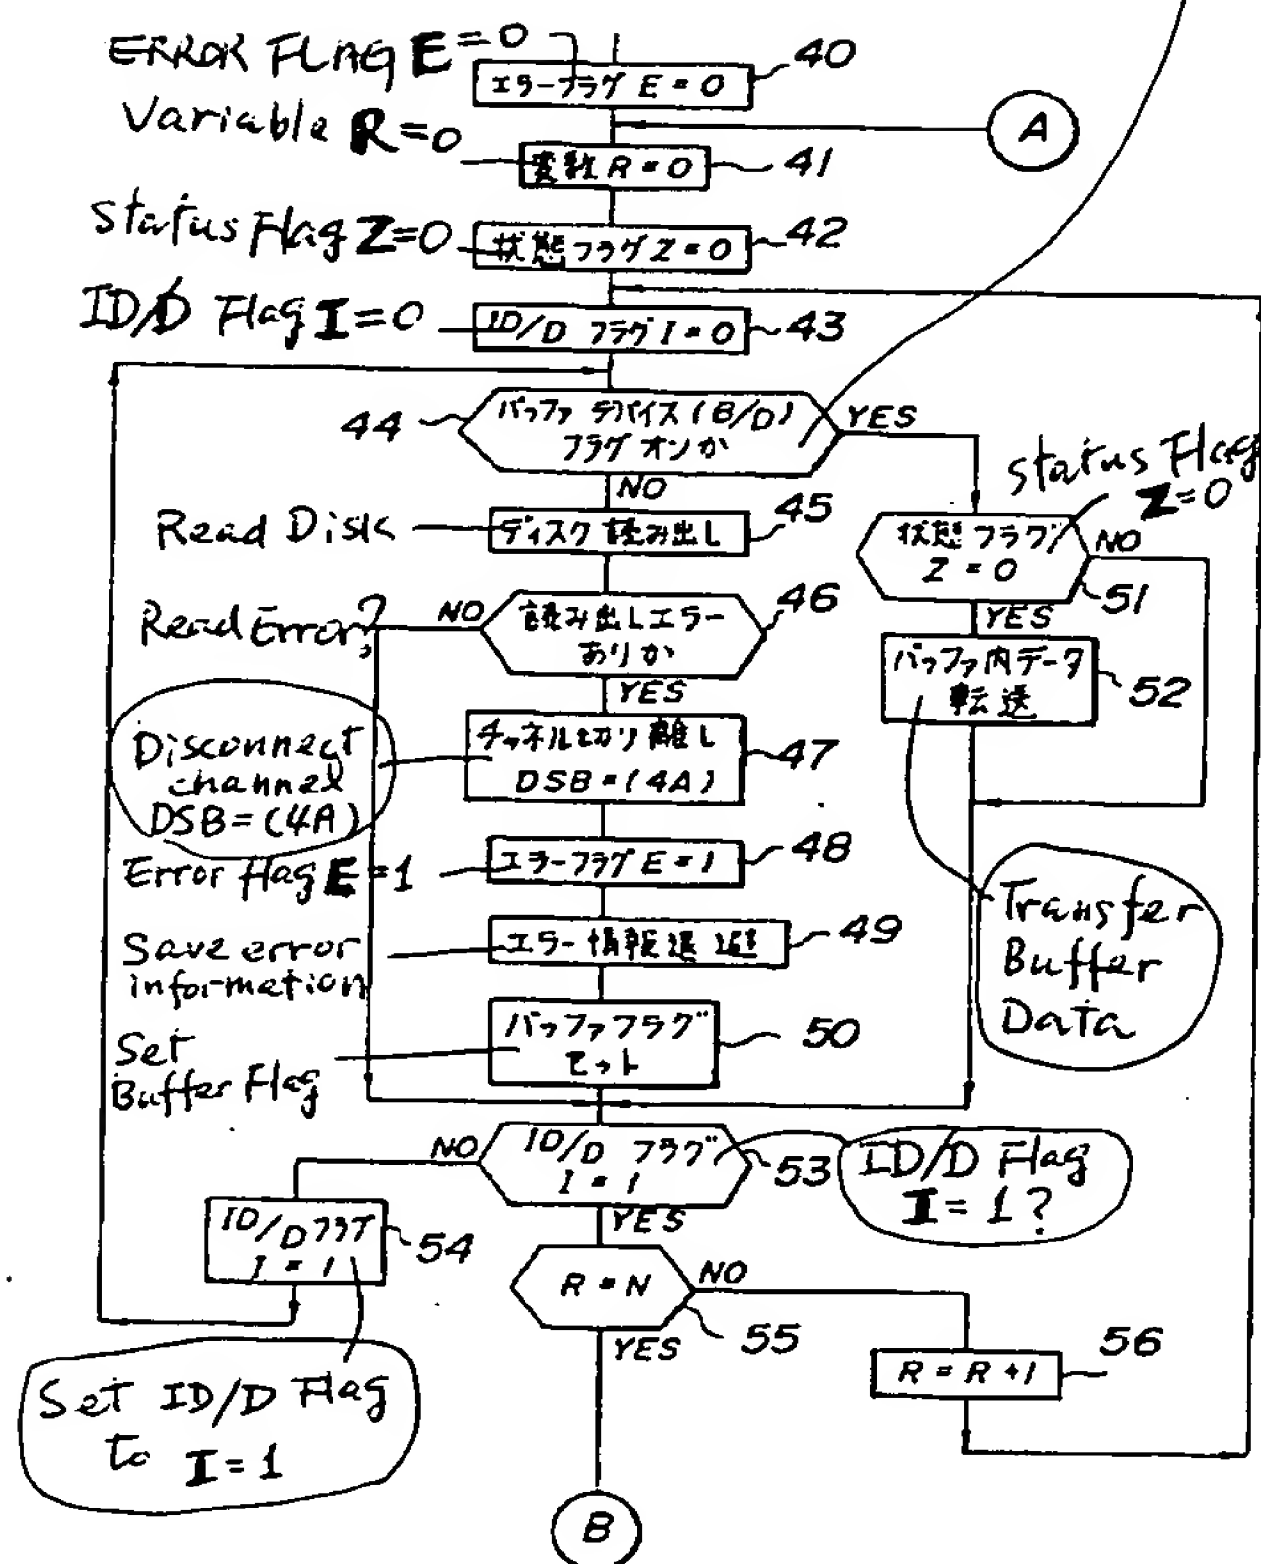 ERROR FLAG E=0
エラーフラグ E = 0
40
A
Variable R=0
変数 R = 0
41
Status Flag Z=0
状態フラグ Z = 0
42
ID/D Flag I=0
ID/D フラグ I = 0
43
44
バッファ デバイス (B/D)
フラグ オンか
YES
NO
Status Flag
Z=0
Read Disk
ディスク 読み出し
45
状態 フラグ
Z = 0
NO
51
YES
Read Error?
NO
読み出しエラー
ありか
46
YES
バッファ内データ
転送
52
Disconnect
channel
DSB=(4A)
チャネル切り離し
DSB=(4A)
47
Error flag E=1
エラーフラグ E = 1
48
Save error
information
エラー情報退避
49
Transfer
Buffer
Data
Set
Buffer Flag
バッファフラグ
セット
50
NO
ID/D フラグ
I = 1
53
YES
ID/D Flag
I = 1?
ID/D フラグ
I = 1
54
R = N
NO
55
YES
R = R +1
56
Set ID/D Flag
to I = 1
B